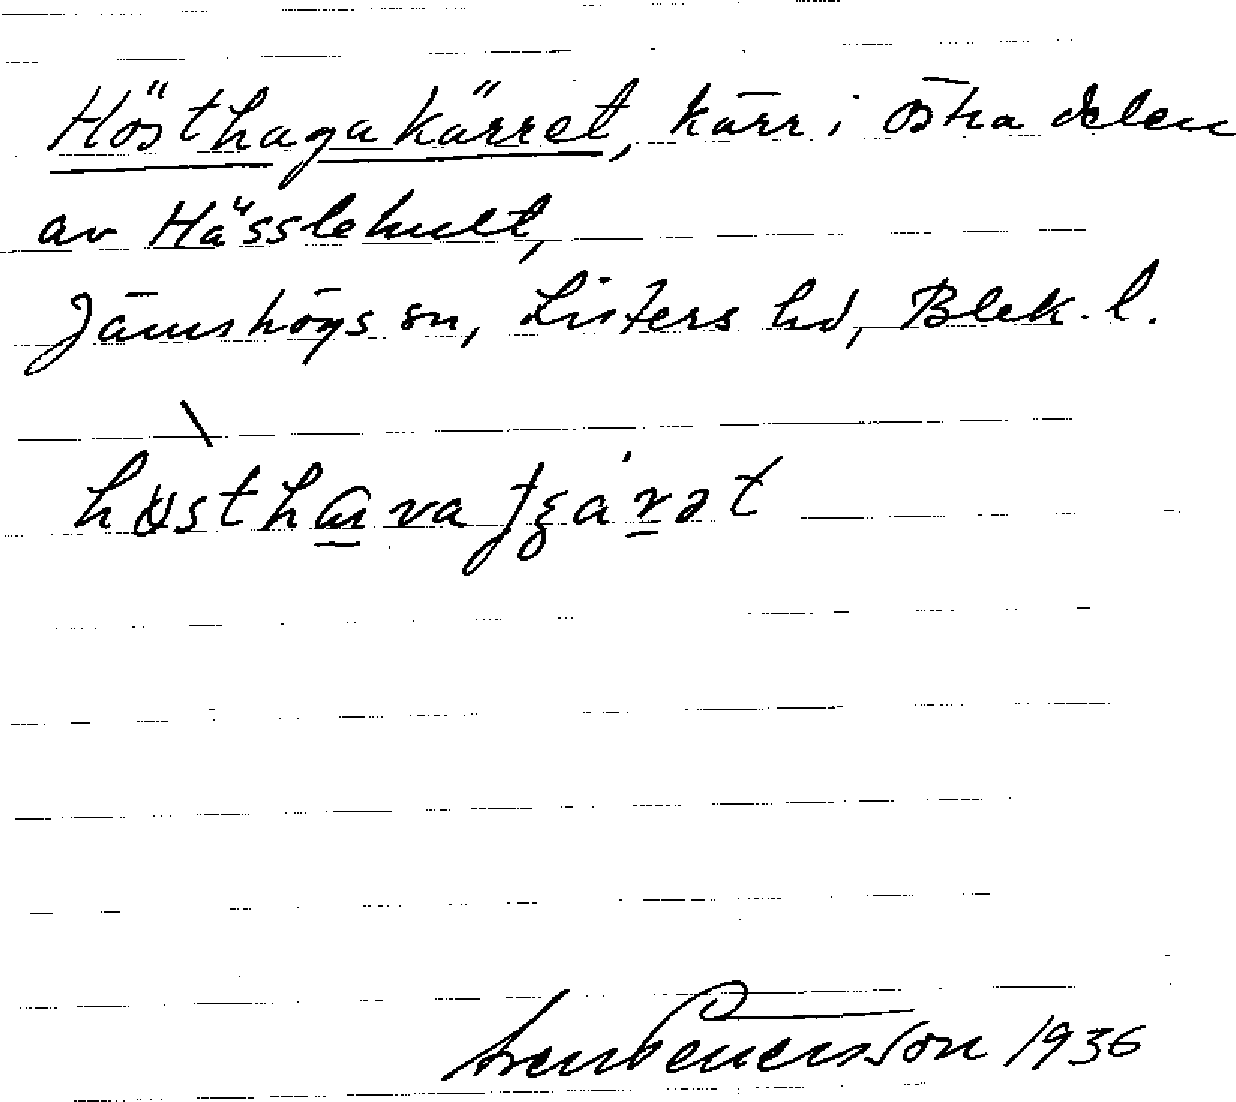 Hösthagakärret, kärr i östra delen
av Hässlehult,
Jämshögs sn, Listers hd, Blek. l.
1936